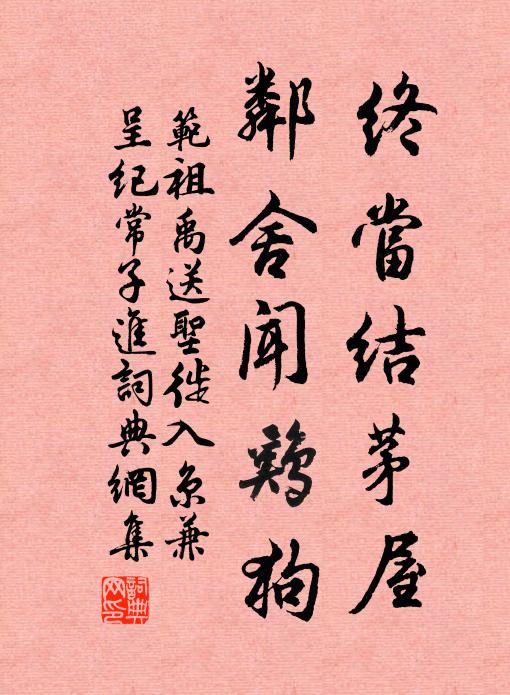 終當結茅屋
鄰舍聞鷄狗
範祖禹送聖徙入京兼
呈紀常子進詞典網集